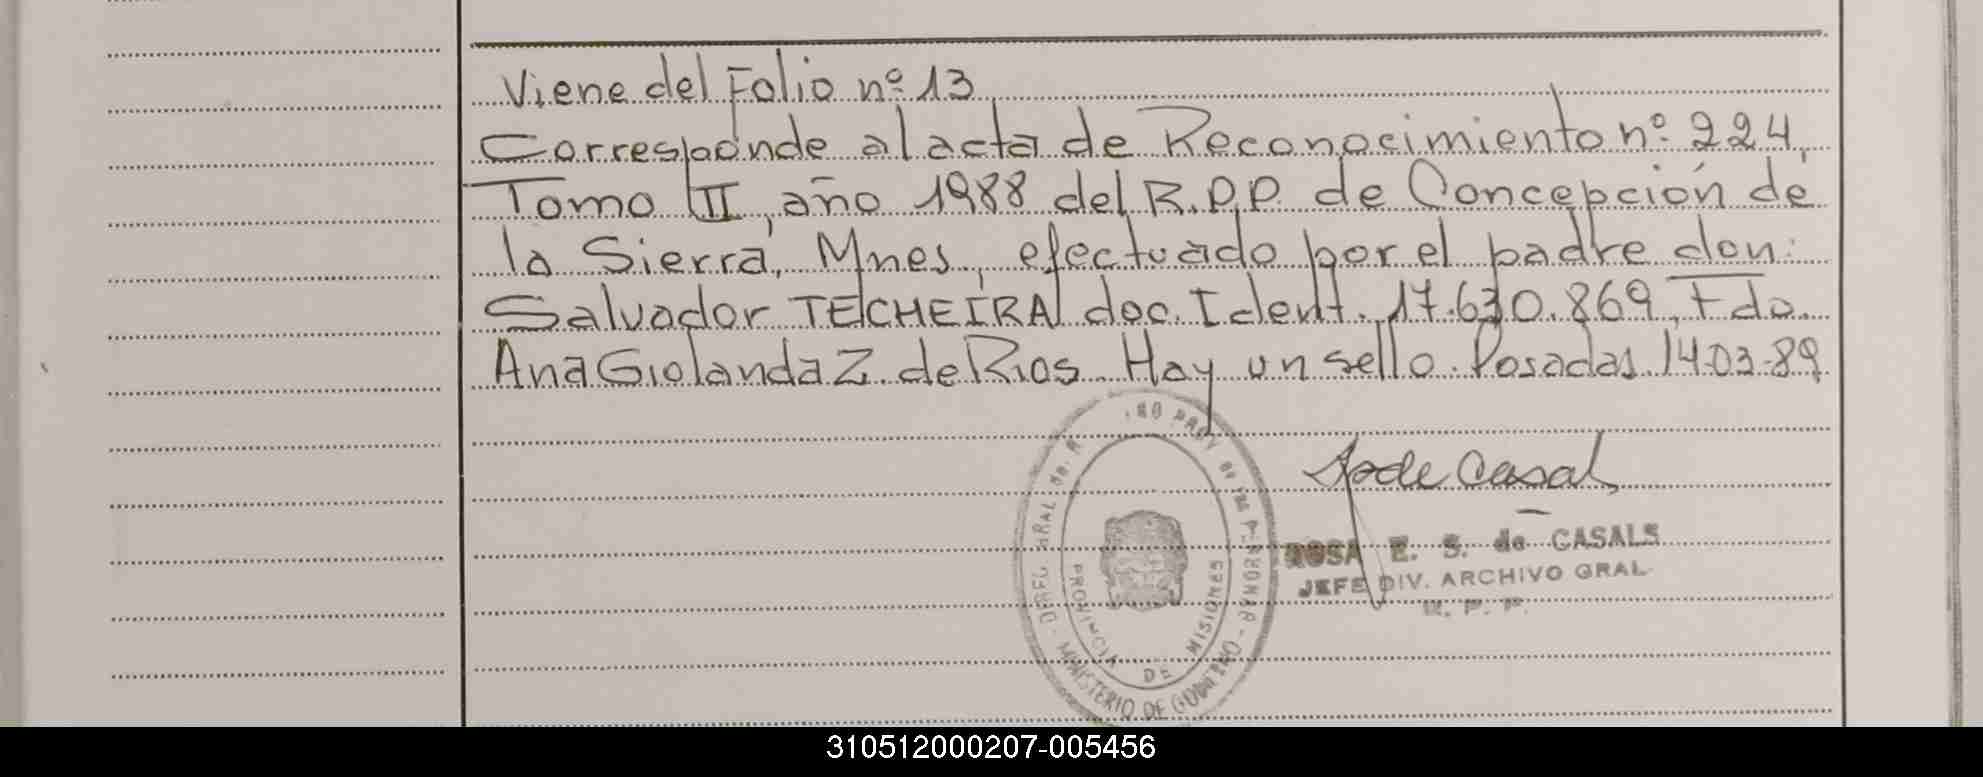 Viene del Folio nº 13
Corresponde al acta de Reconocimiento nº 224,
Tomo II, año 1988 del R.P.P. de Concepción de
la Sierra, Mnes, efectuado por el padre don:
Salvador TECHEIRA doc. Ident. 17.630.869, Fdo.
Ana Giolanda Z. de Rios. Hay un sello. Posadas 14-03-89
de Casals
ROSA E. S. de CASALS
JEFE DIV. ARCHIVO GRAL.
R. P. P.
MINISTERIO DE GOBIERNO
PROVINCIA DE MISIONES
310512000207-005456